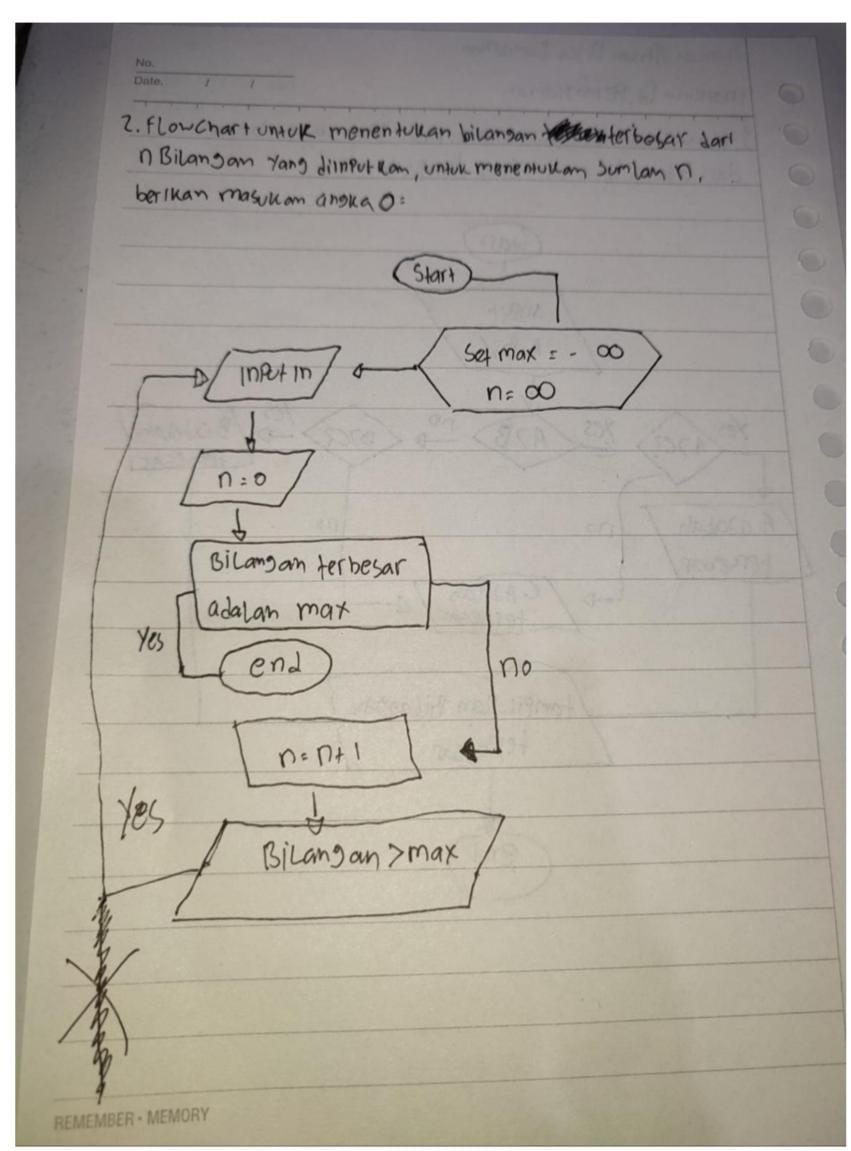 No.
Date. / /
2. Flowchart untuk menentukan bilangan terbesar dari
n Bilangan yang diinputkan, untuk menentukan Jumlah n,
berikan masukan angka 0:
Start
Set max = - ∞
n = ∞
input n
n = 0
Bilangan terbesar
adalah max
Yes
end
no
n = n + 1
Yes
Bilangan > max
REMEMBER - MEMORY